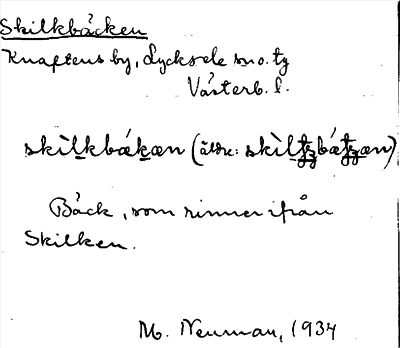 Skilkbäcken
Knaftens by, Lycksele sno. tg
Västerb. l.
skìlkbákæn (äldre: skìltʒbátʒæn)
Bäck, som rinner ifrån
Skilken.
M. Neuman, 1934